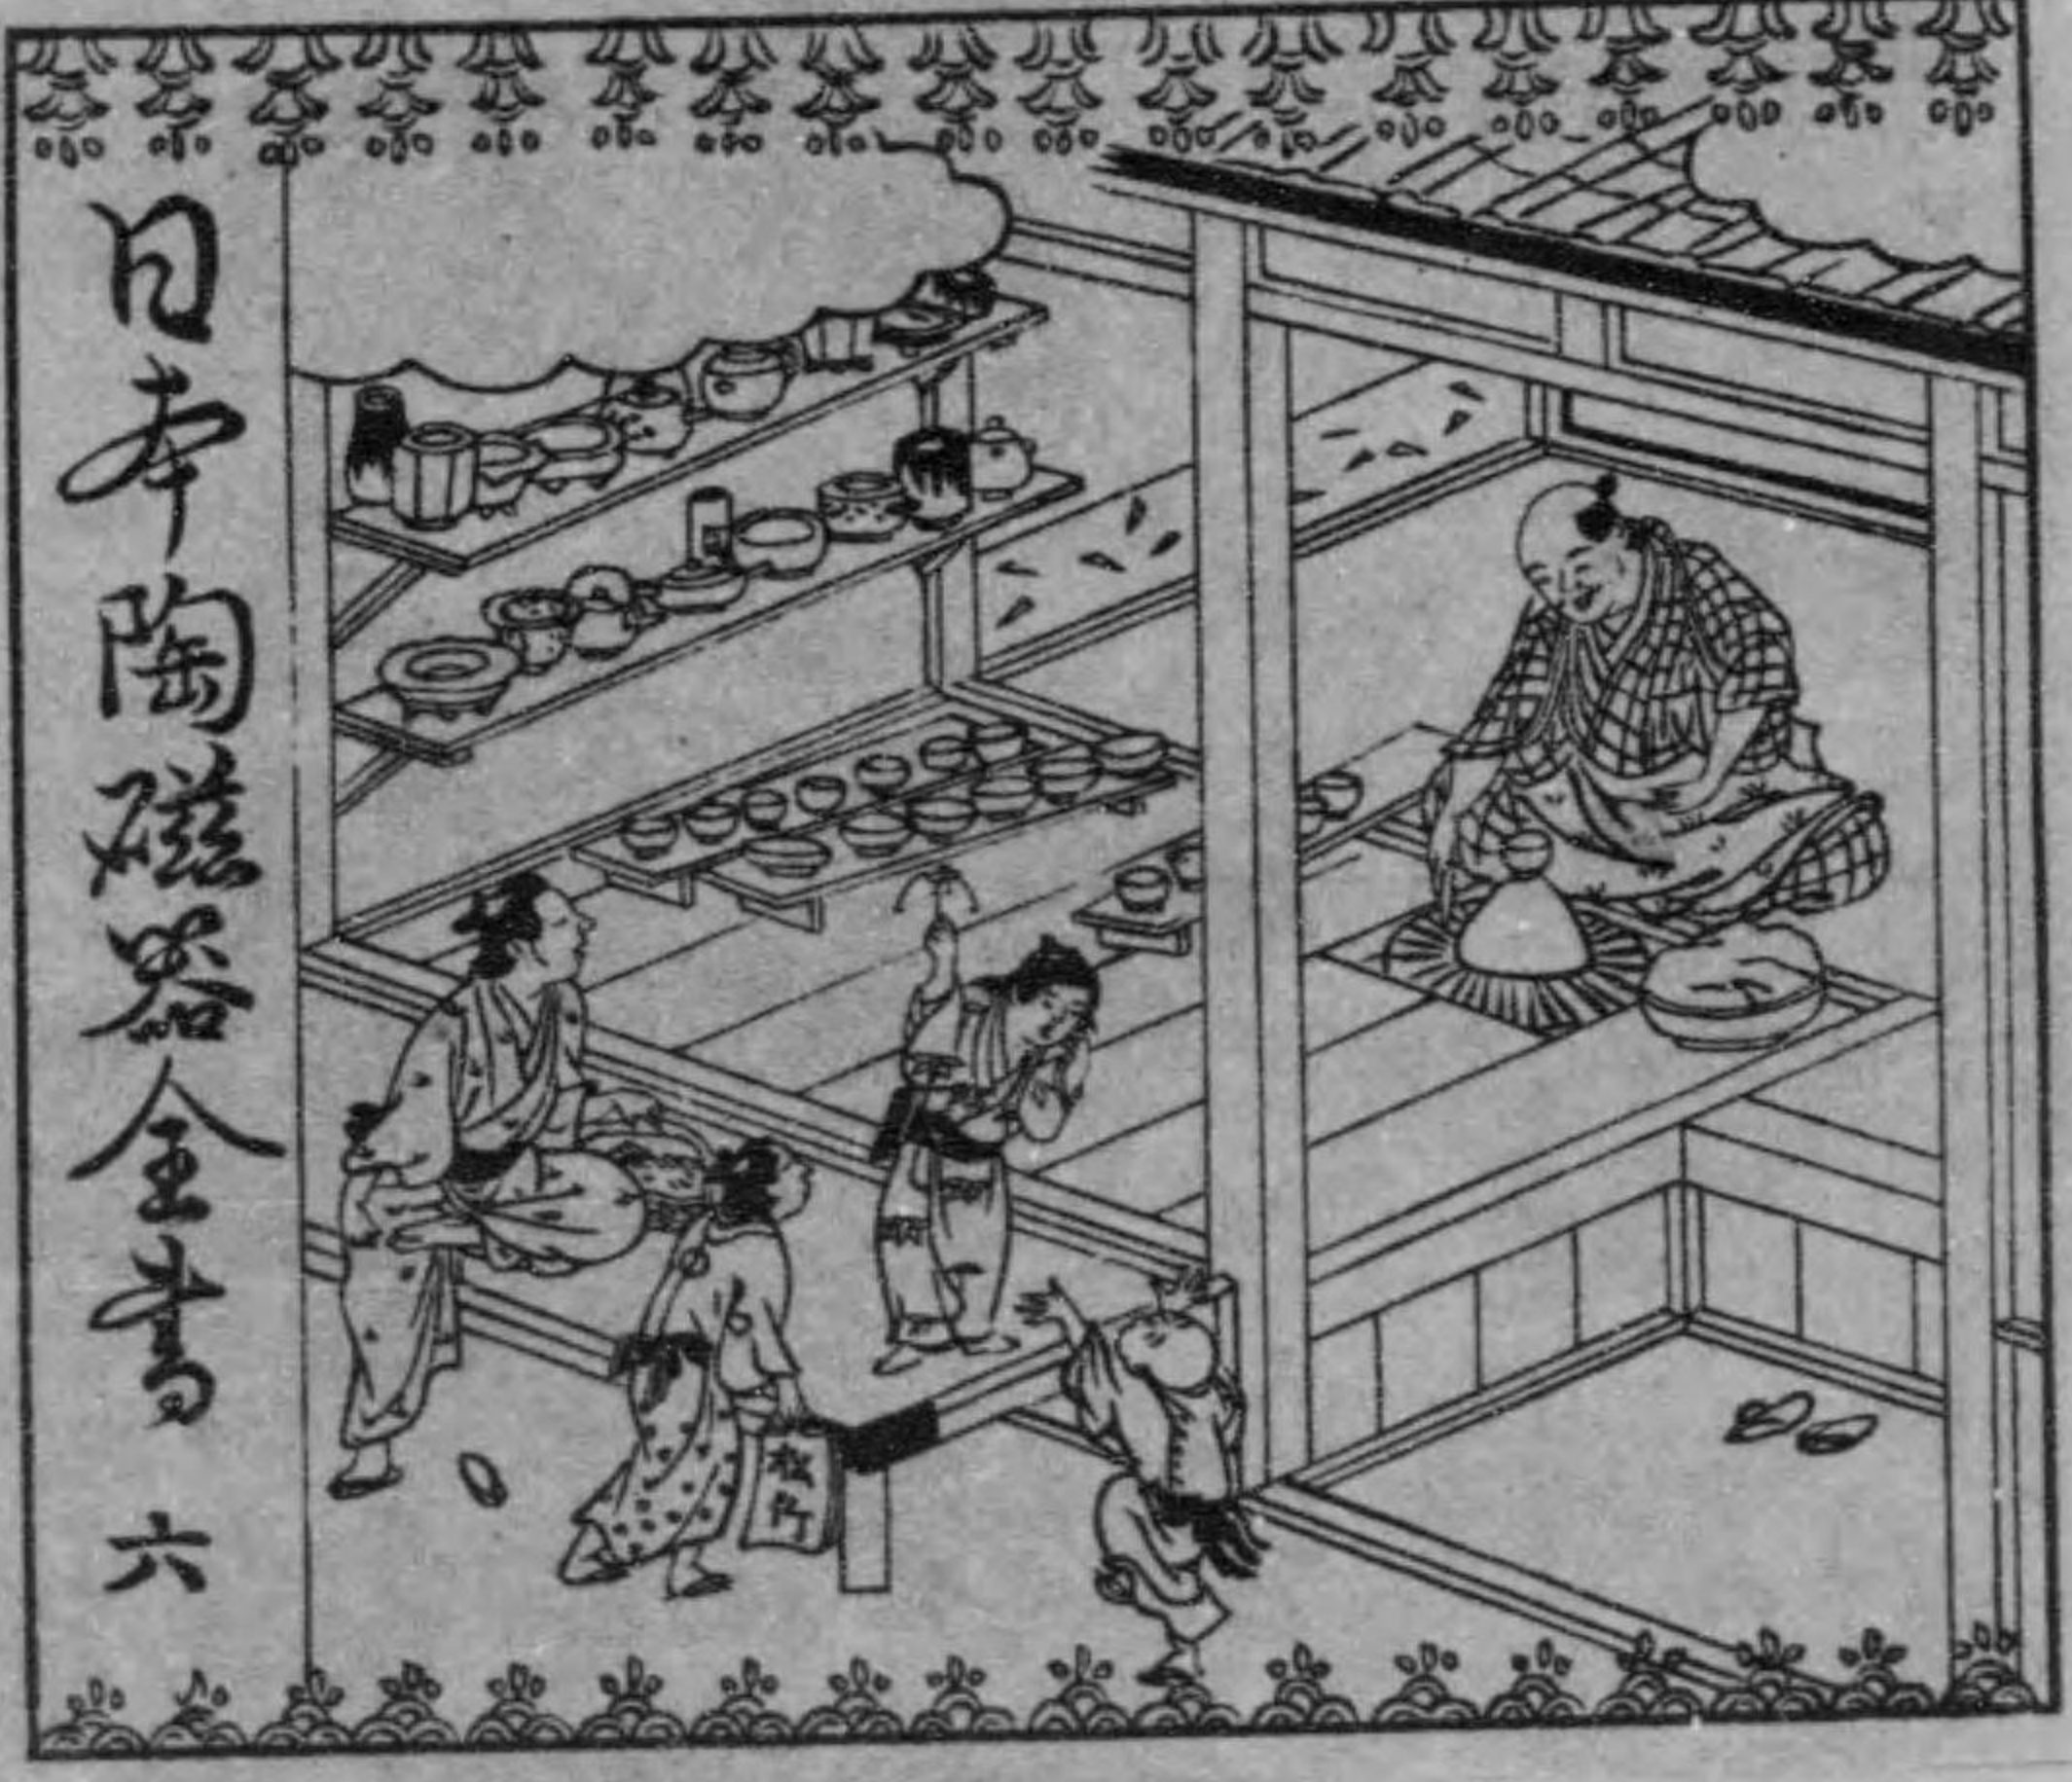 日本陶磁器全書 六
松竹